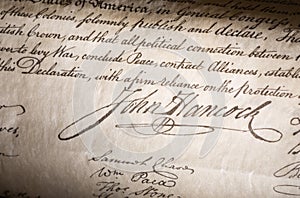 States of America, in General Congress,
of these Colonies, solemnly publish and declare, That
British Crown, and that all political connection between
levy War, conclude Peace, contract Alliances, establ
this Declaration, with a firm reliance on the protection
John Hancock
Samuel Chase
Wm Paca
Thos Stone